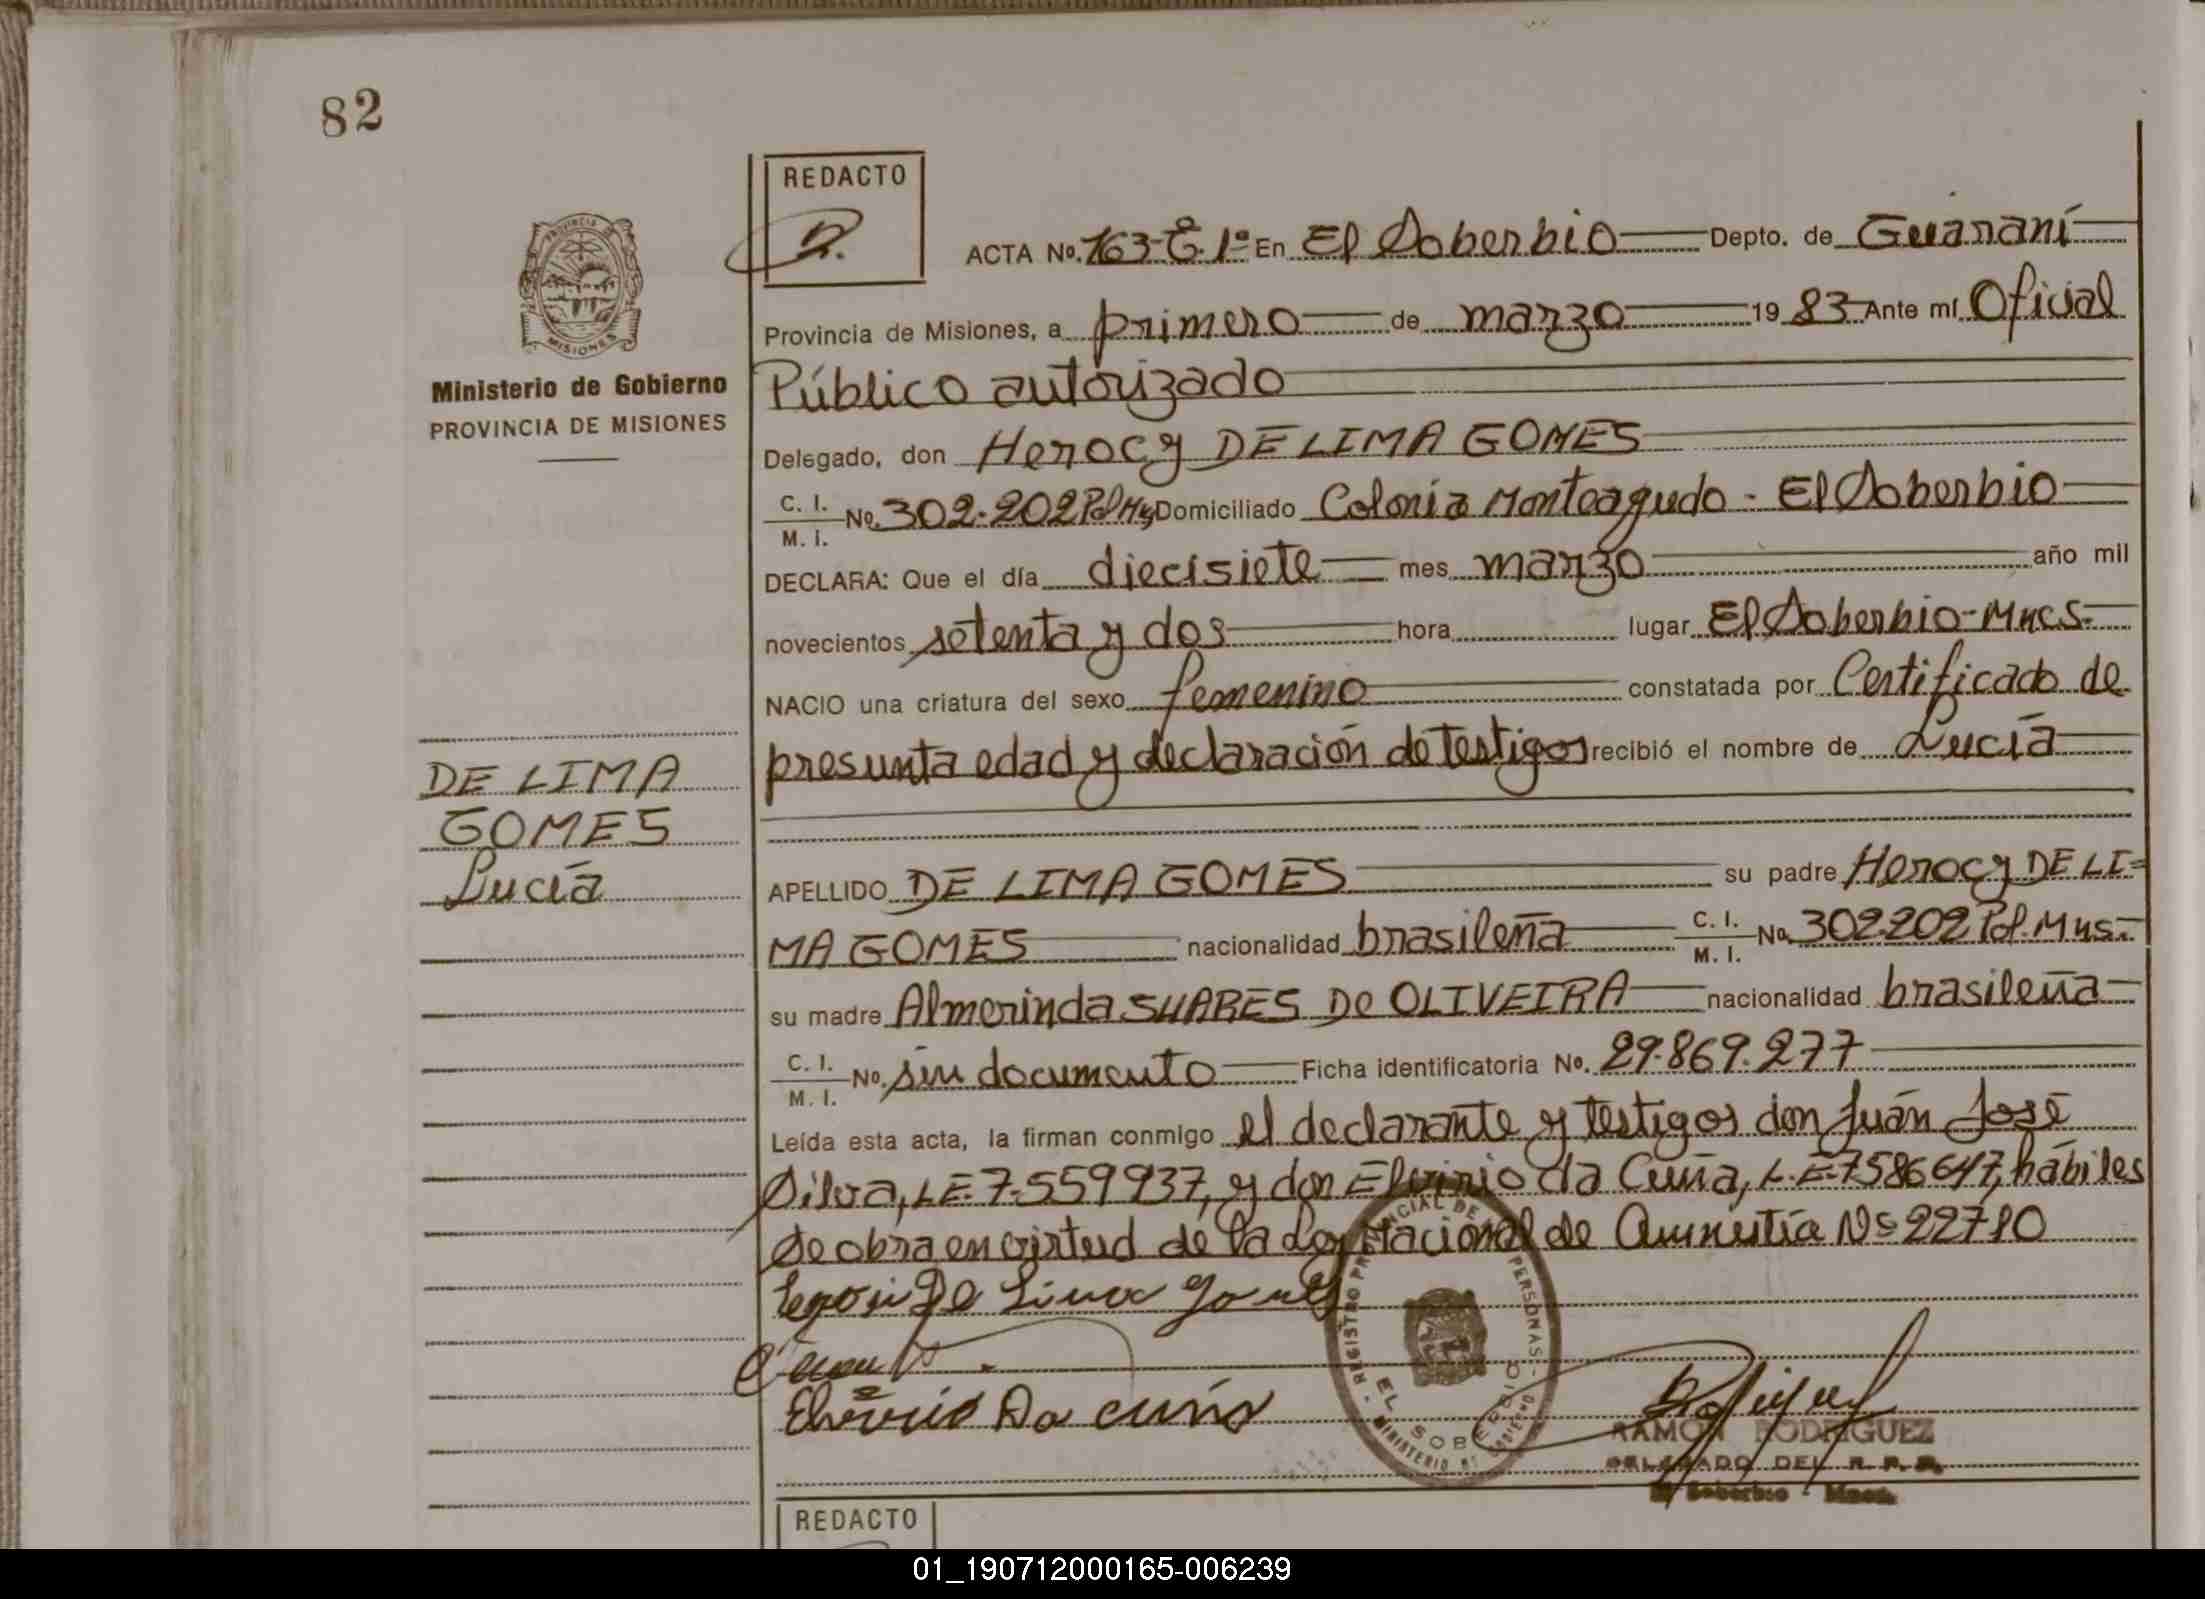 82
REDACTO
PROVINCIA DE
MISIONES
Ministerio de Gobierno
PROVINCIA DE MISIONES
ACTA No. 163-E. 1º En El Soberbio Depto. de Guaraní
Provincia de Misiones, a primero de marzo 19 83 Ante mí Oficial
Público autorizado
Delegado, don Herocy DE LIMA GOMES
C. I. / M. I. No. 302.202 Pol Mns Domiciliado Colonia Monteagudo - El Soberbio
DECLARA: Que el día diecisiete mes marzo año mil
novecientos setenta y dos hora lugar El Soberbio-Mnes.
NACIO una criatura del sexo femenino constatada por Certificado de
presunta edad y declaración de testigos recibió el nombre de Lucía
DE LIMA
GOMES
Lucía
APELLIDO DE LIMA GOMES su padre Herocy DE LI=
MA GOMES nacionalidad brasileña C. I. / M. I. No. 302.202 Pol. Mns.
su madre Almerinda SUARES De OLIVEIRA nacionalidad brasileña
C. I. / M. I. No. sin documento Ficha identificatoria No. 29.869.277
Leída esta acta, la firman conmigo el declarante y testigos don Juán José
Silva, L.E. 7.559937, y don Elvirio da Cuña, L.E. 7586647, hábiles
Se obra en virtud de la Ley Nacional de Amnistía Nº 22710
De Lima Gomes
Elvirio Da cuña
REGISTRO PROVINCIAL DE PERSONAS
EL SOBERBIO
MINISTERIO DE GOBIERNO
RAMON RODRIGUEZ
DELEGADO DEL R. P. P.
El Soberbio - Mnes.
REDACTO
01_190712000165-006239